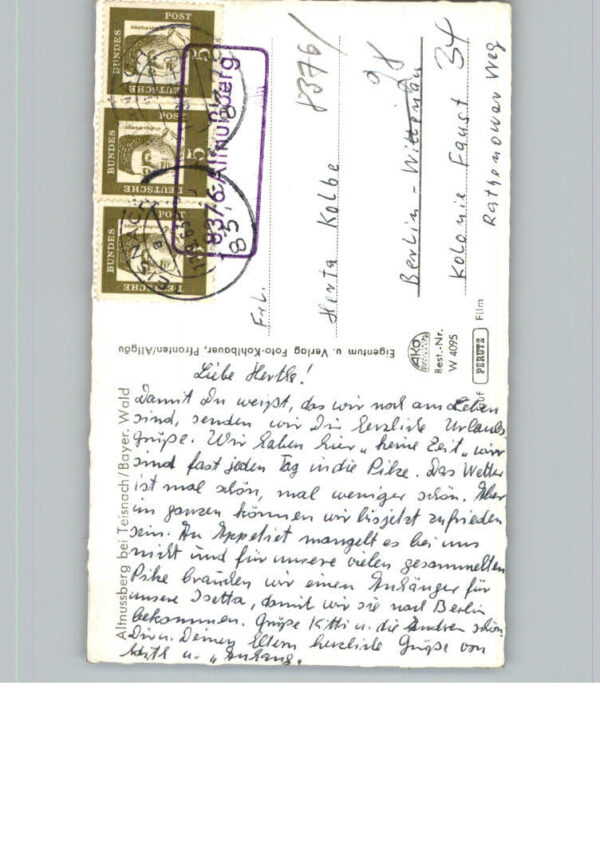 Liebe Hertha!
Damit Du weißt, das wir noch am Leben
sind, senden wir Dir herzliche Urlaubs
grüße. Wir haben hier „keine Zeit" wir
sind fast jeden Tag in die Pilze. Das Wetter
ist mal schön, mal weniger schön. Aber
im ganzen können wir bis jetzt zufrieden
sein. An Appetiet mangelt es bei uns
nicht und für unsere vielen gesammelten
Pilze brauchen wir einen Anhänger für
unsere Isetta, damit wir sie nach Berlin
bekommen. Grüße Kitti u. die Andren schön
Dir u. Deinen Eltern herzliche Grüße von
u. „Anhang.
Altnussberg bei Teisnach/Bayer. Wald
Eigentum u. Verlag Foto-Kohlbauer, Pfronten/Allgäu
AKO
Best.-Nr.
W 4095
auf PERUTZ Film
Frl.
Herta Kolbe
Berlin - Wittenau
Kolonie Faust 34
Rathenower Weg
8376/
8376 Altnußberg
DEUTSCHE BUNDESPOST
5
DEUTSCHE BUNDESPOST
5
DEUTSCHE BUNDESPOST
5
TEISNACH